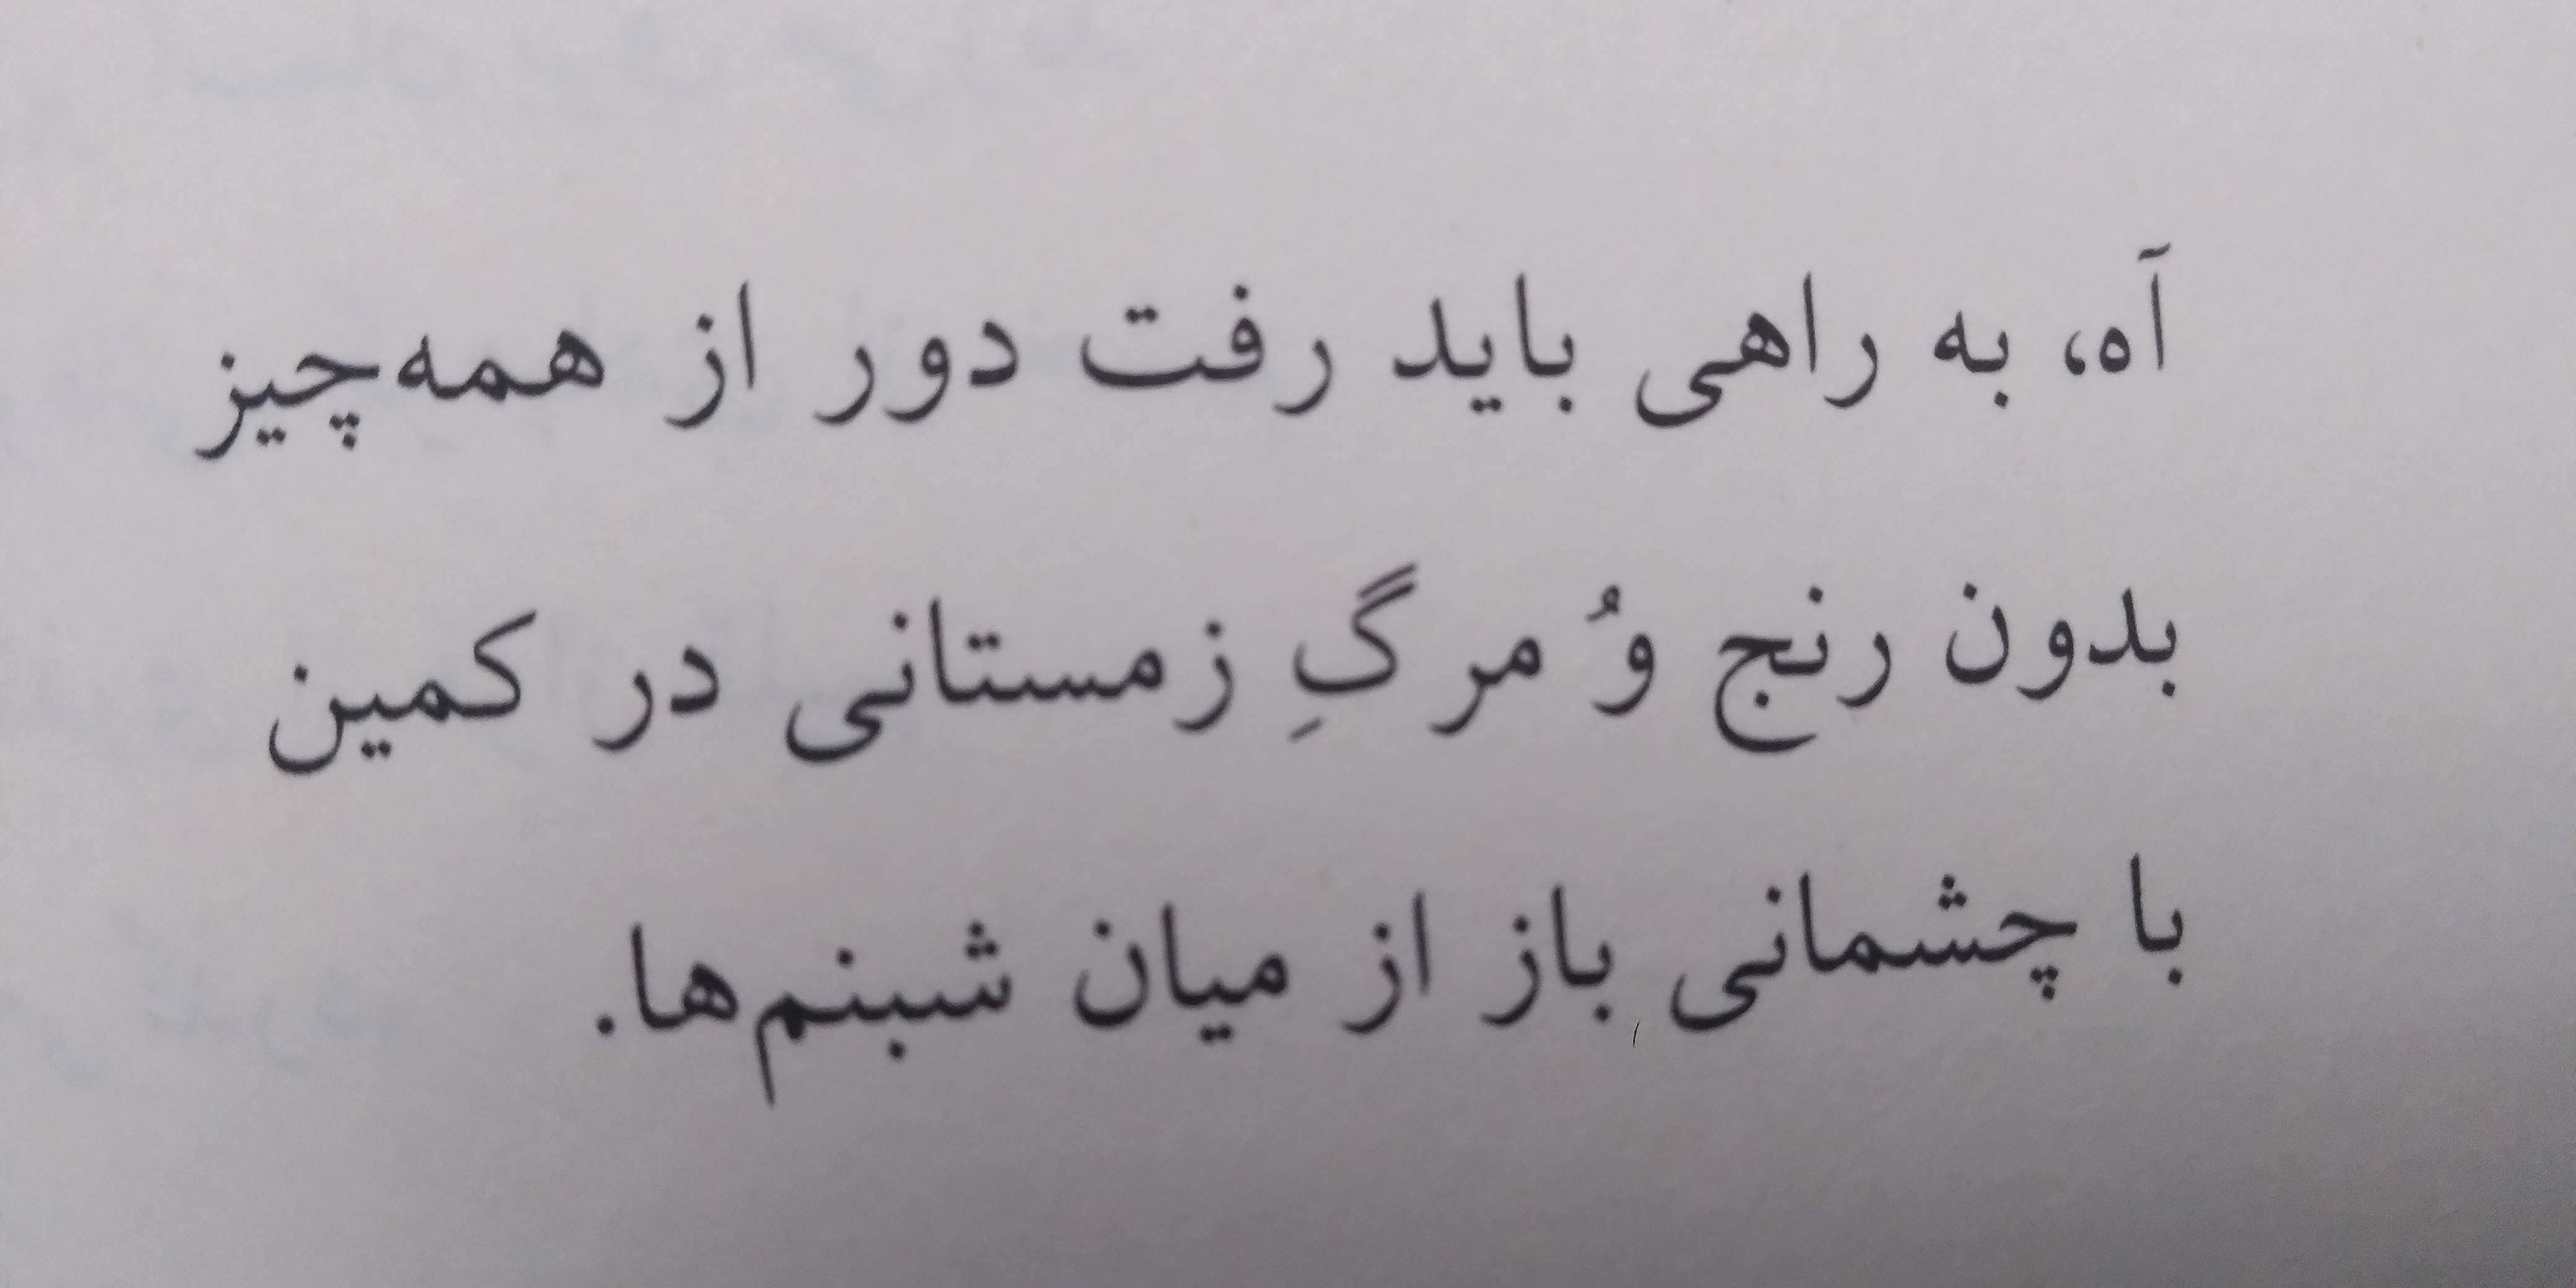 آه، به راهی باید رفت دور از همه‌چیز
بدون رنج وُ مرگِ زمستانی در کمین
با چشمانی باز از میان شبنم‌ها.